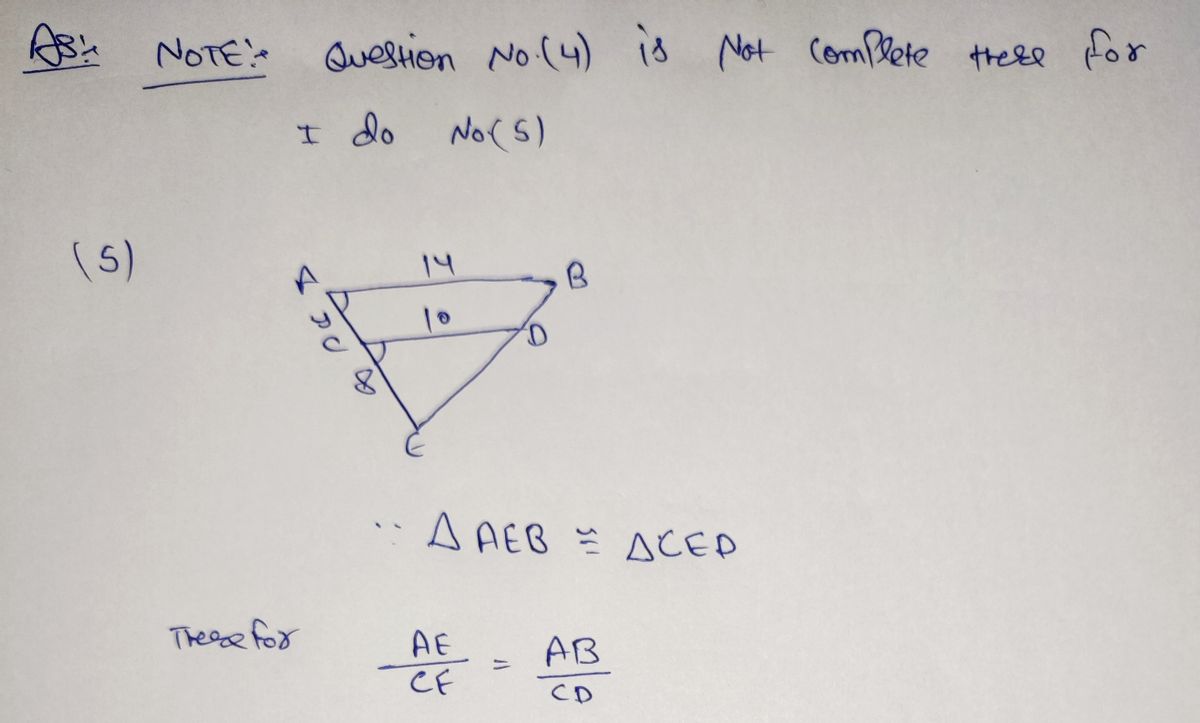 AS:-
NOTE:- Question No.(4) is Not Complete there for
I do No(5)
(5)
A 14 B
C 10 D
8
E
∵ Δ AEB ≅ ΔCED
There for AE/CE = AB/CD